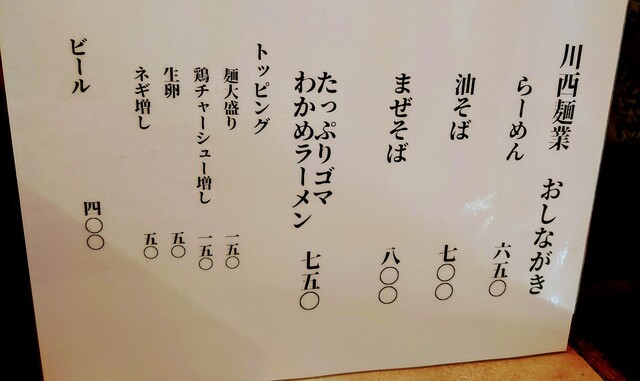 川西麺業 おしながき
らーめん 六五〇
油そば 七〇〇
まぜそば 八〇〇
たっぷりゴマ
わかめラーメン 七五〇
トッピング
麺大盛り 一五〇
鶏チャーシュー増し 一五〇
生卵 五〇
ネギ増し 五〇
ビール 四〇〇